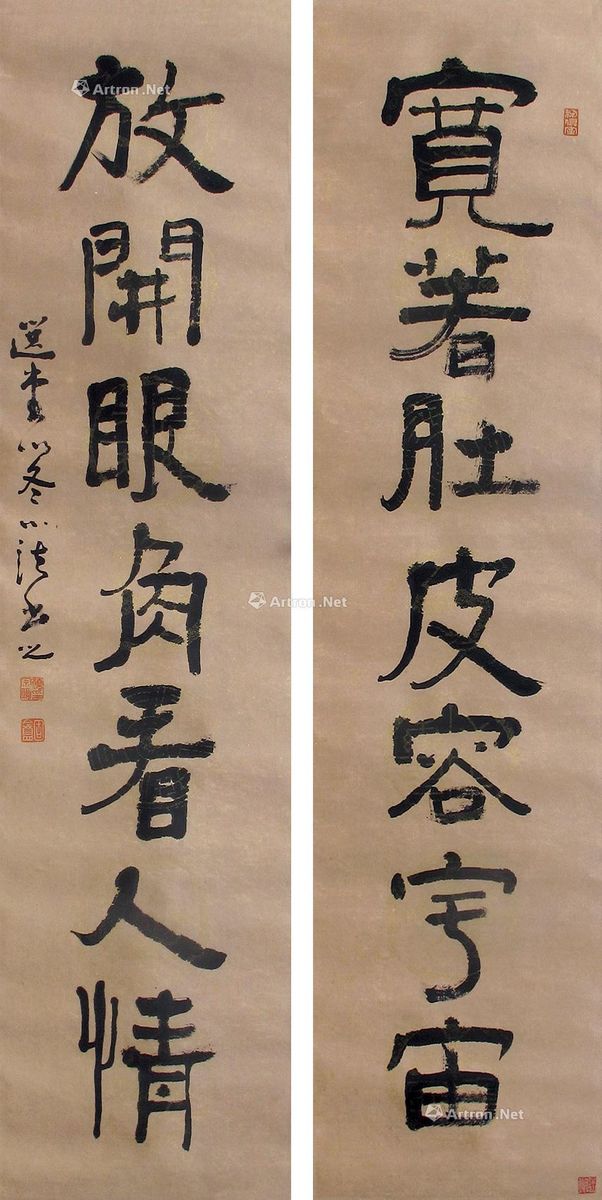 寬著肚皮容宇宙
放開眼角看人情
選堂以冬心法書之
Artron.Net
Artron.Net
Artron.Net